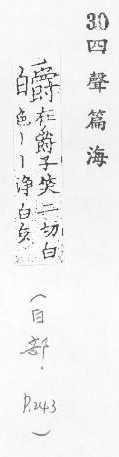 30 四聲篇海
皭 在爵子笑二切白
色丨丨淨白皃
(白部. P.243)